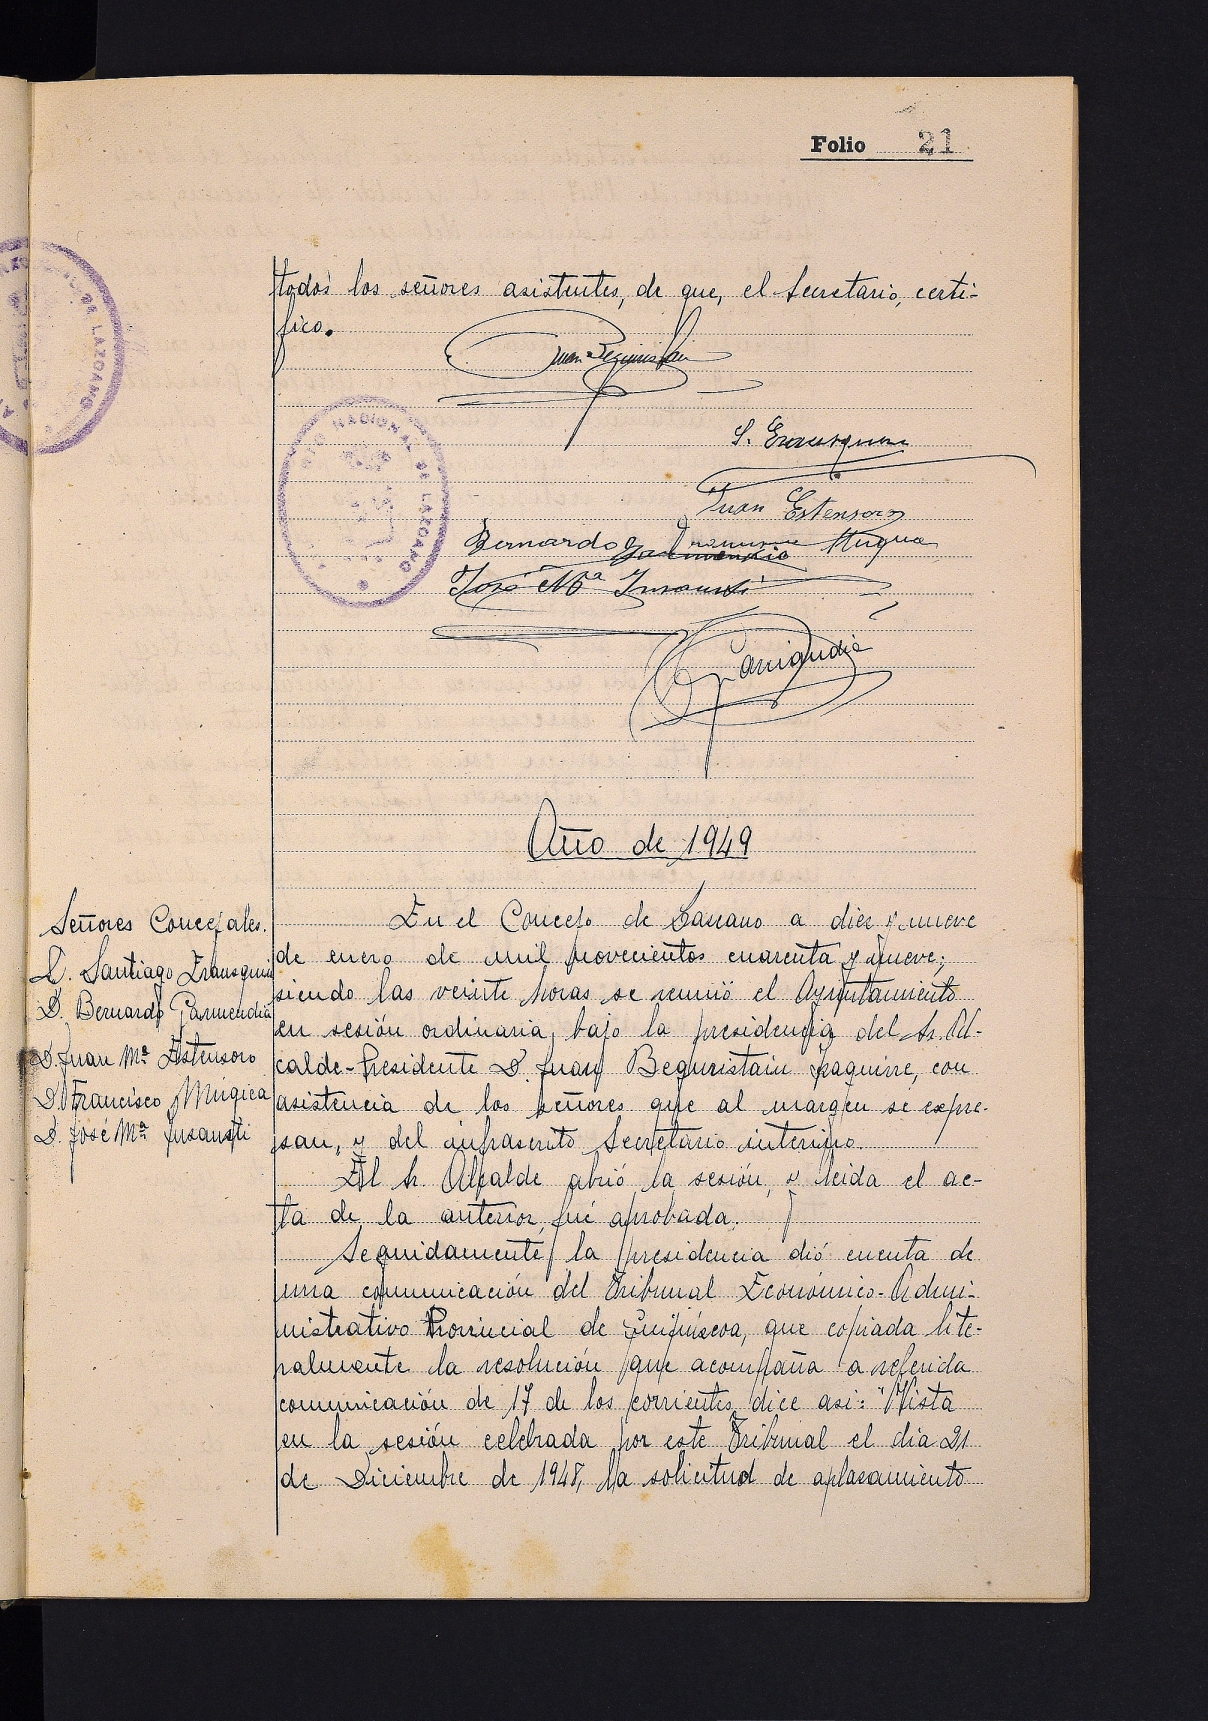 Folio 21
todos los señores asistentes, de que, el Secretario, certi-
fico.
Juan Beguiristain
S. Erausquin
Juan Estensoro
Bernardo Garmendia
Mugica
José Mª Insausti
NACIONAL DE LAZCANO
DE LAZCANO
Garigudia
Año de 1949
Señores Concejales.
D. Santiago Erausquin
D. Bernardo Garmendia
D. Juan Mª Estensoro
D. Francisco Múgica
D. José Mª Insausti
En el Concejo de Lazcano a diez y nueve
de enero de mil novecientos cuarenta y nueve;
siendo las veinte horas se reunió el Ayuntamiento
en sesión ordinaria, bajo la presidencia del Sr. Al-
calde-Presidente D. Juan Beguiristain Izaguirre, con
asistencia de los señores que al margen se expre-
san, y del infrascrito Secretario interino.
El Sr. Alcalde abrió la sesión, y leida el ac-
ta de la anterior, fué aprobada.
Seguidamente la presidencia dió cuenta de
una comunicación del Tribunal Económico-Admi-
nistrativo Provincial de Guipúzcoa, que copiada lite-
ralmente la resolución que acompaña a referida
comunicación de 17 de los corrientes, dice asi: "Vista
en la sesión celebrada por este Tribunal el dia 21
de Diciembre de 1948, la solicitud de aplazamiento